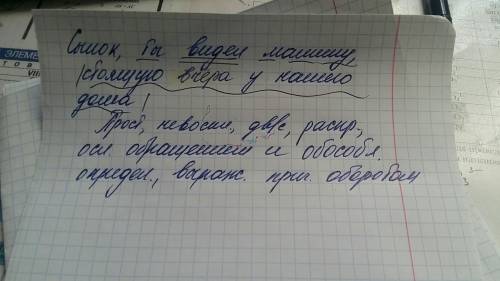 Сынок, вы видел машину,
|стоящую вчера у нашего
дома|
Прост, невоскл, двус, распр,
осл. обращением и обособл.
определ., выраж. прич. оборотом
ЭЛЕМЕ
VIII